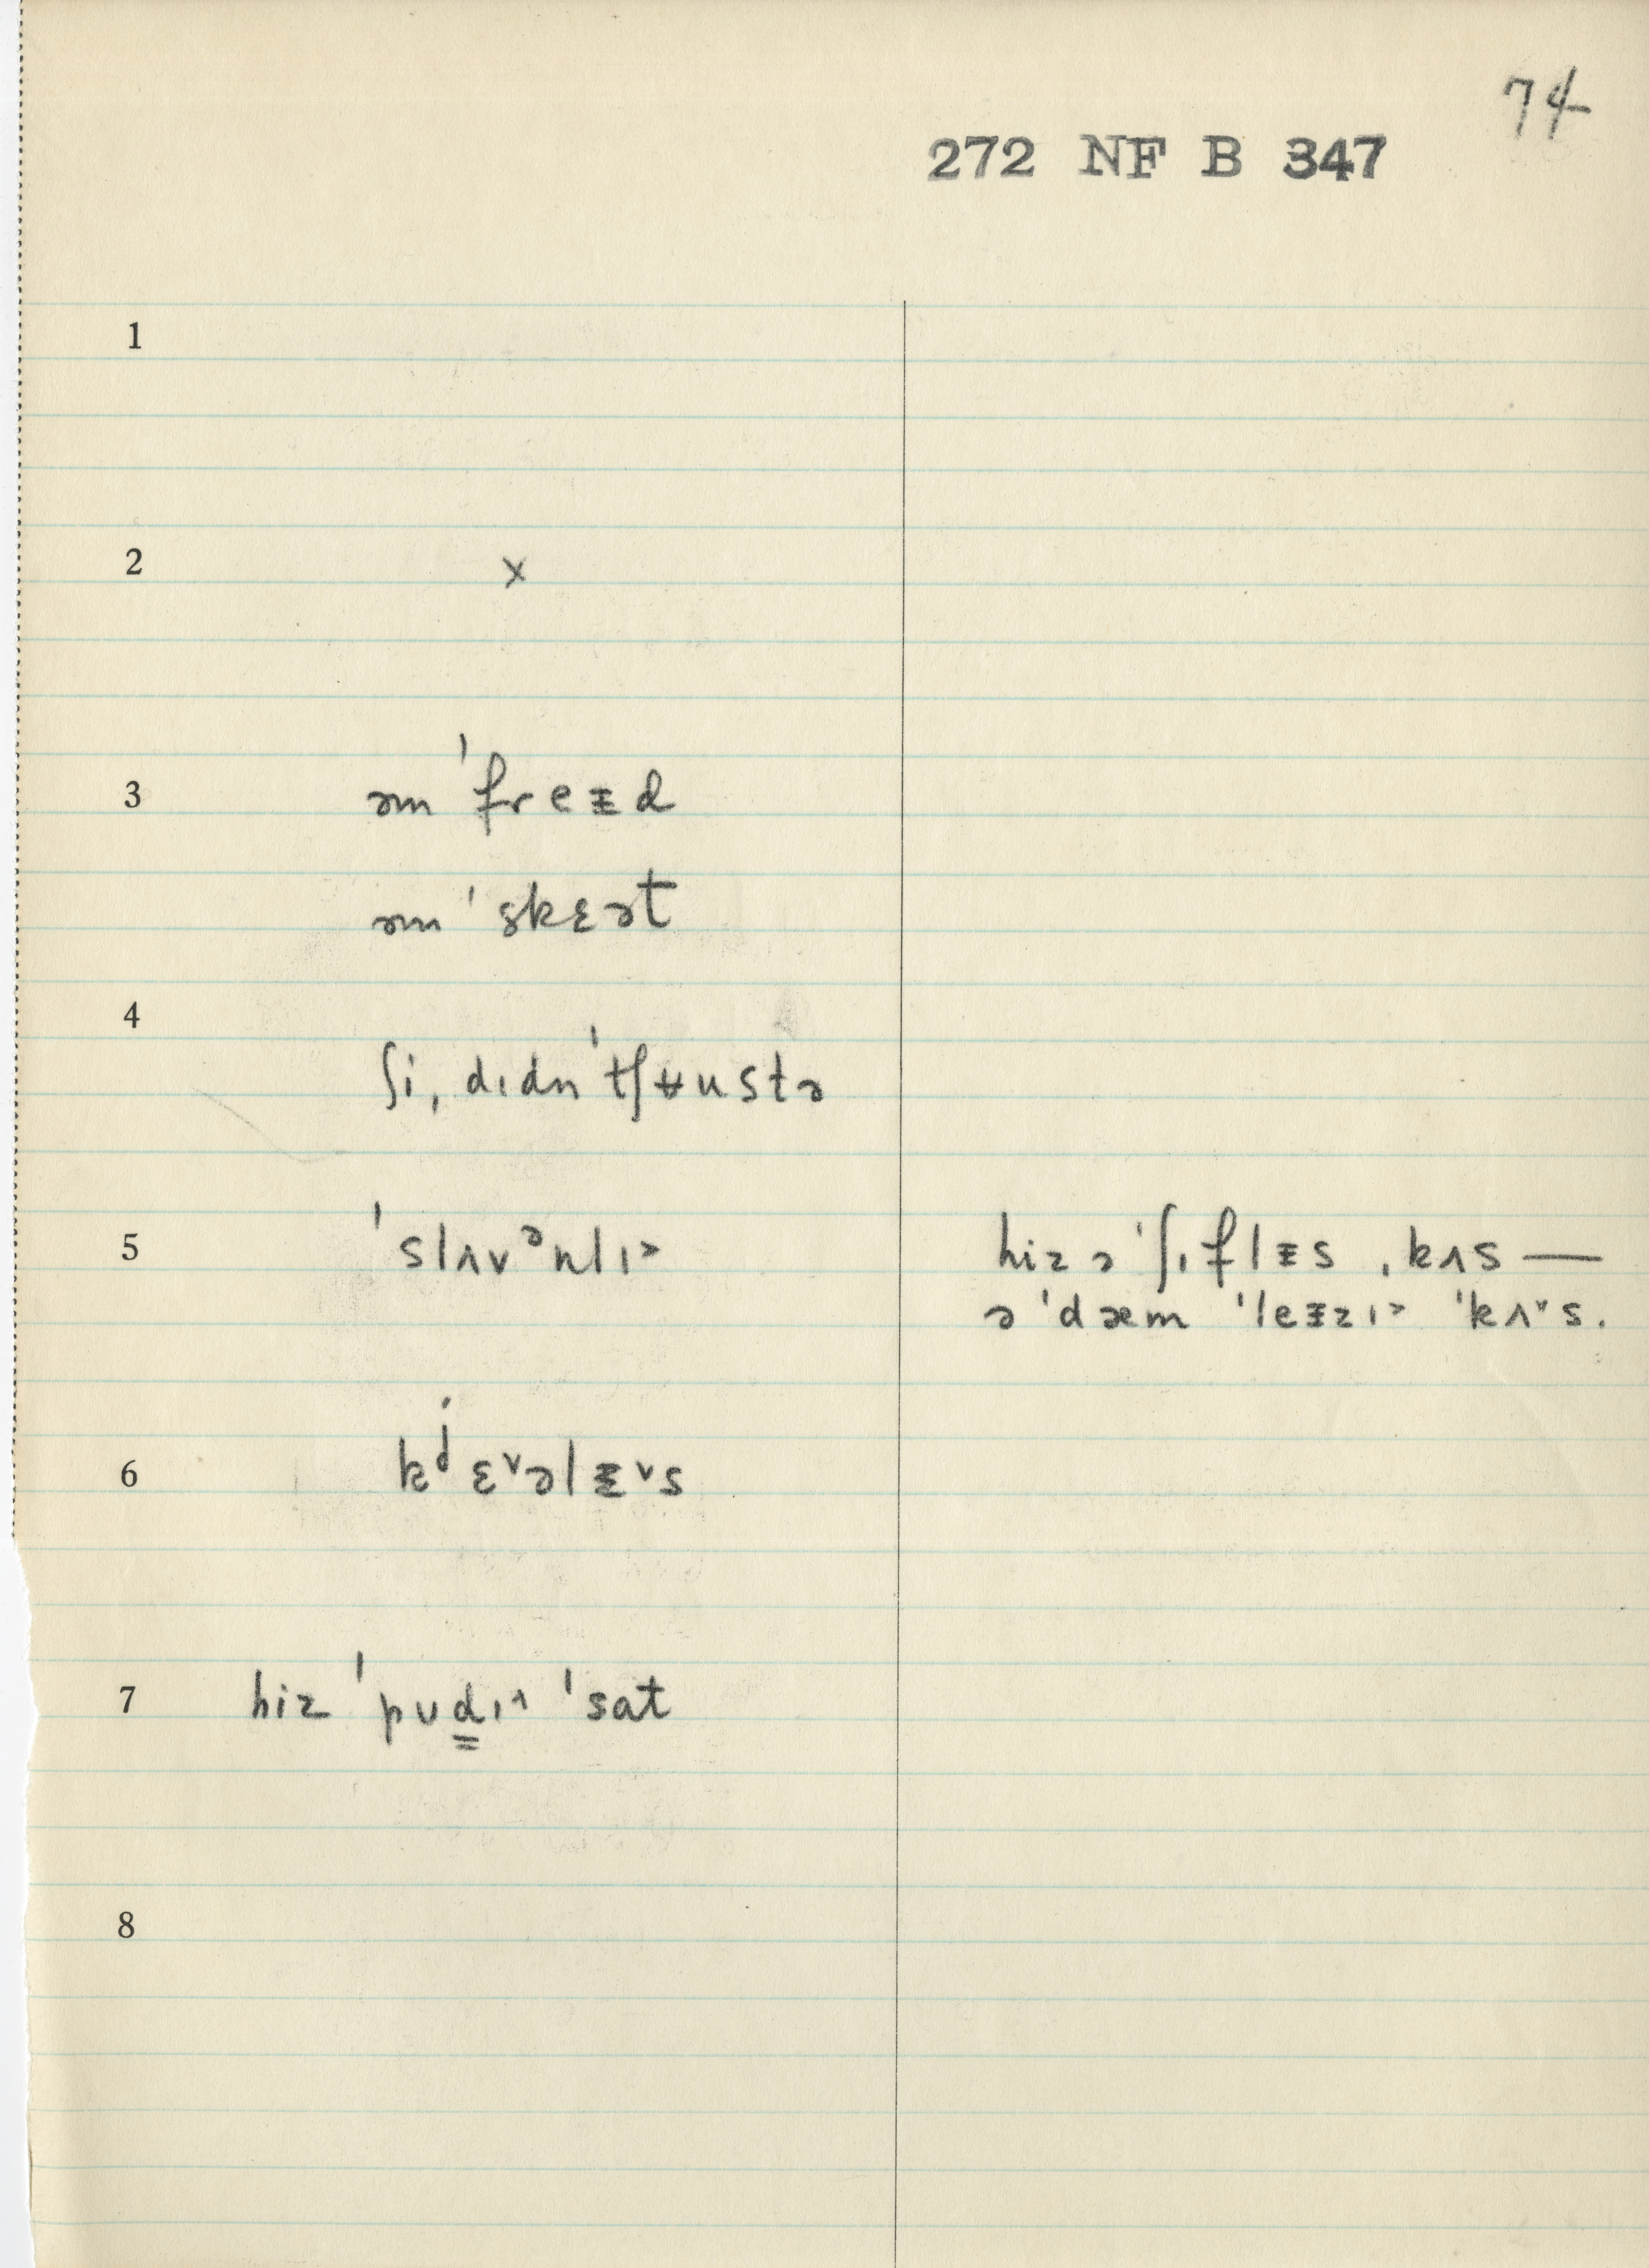 74
272 NF B 347
1
2 x
3 əm ˈfreᵻd
əm ˈskɛət
4
ʃi ˌdɪdn ˈtʃʉustə
5 ˈslʌvᵊnlɪ˃ hiz ə ˈʃɪflᵻs ˌkʌs —
ə ˈdæm ˈleᵻzɪ˃ ˈkʌ˅s.
6 kʲɛ˅əlᵻ˅s
7 hiz ˈpʊd̳ɪ˄ ˈsat
8